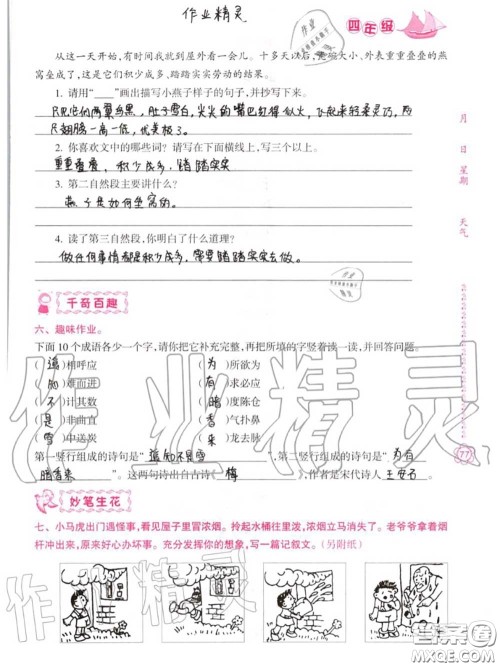 作业精灵
四年级
从这一天开始,有时间我就到屋外看一会儿。十多天以后,足碗大小、外表重重叠叠的燕
窝垒成了,这是它们积少成多、踏踏实实劳动的结果。
1. 请用“____”画出描写小燕子样子的句子,并抄写下来。
只见它们两翼乌黑,肚子雪白,尖尖的嘴巴红得似火,飞起来轻柔灵巧,两
只翅膀一高一低,优美极了。
2. 你喜欢文中的哪些词? 请写在下面横线上,写三个以上。
重重叠叠,积少成多,踏踏实实
3. 第二自然段主要讲什么?
燕子是如何垒窝的。
4. 读了第三自然段,你明白了什么道理?
做任何事情都是积少成多,需要踏踏实实去做的。
月
日
星期
天气
千奇百趣
六、趣味作业。
下面 10 个成语各少一个字,请你把它补充完整,再把所填的字竖着读一读,并回答问题。
( 遥 )相呼应 ( 为 )所欲为
( 知 )难而进 ( 有 )求必应
( 不 )计其数 ( 暗 )度陈仓
( 是 )非曲直 ( 香 )气扑鼻
( 雪 )中送炭 ( 来 )龙去脉
第一竖行组成的诗句是“ 遥知不是雪 ”,第二竖行组成的诗句是“ 为有
暗香来 ”。这两句诗出自古诗《 梅 》,作者是宋代诗人 王安石 。
77
妙笔生花
七、小马虎出门遇怪事,看见屋子里冒浓烟。拎起水桶往里泼,浓烟立马消失了。老爷爷拿着烟
杆冲出来,原来好心办坏事。充分发挥你的想象,写一篇记叙文。(另附纸)
作业精灵
作业精灵
答案圈
MXQE.COM